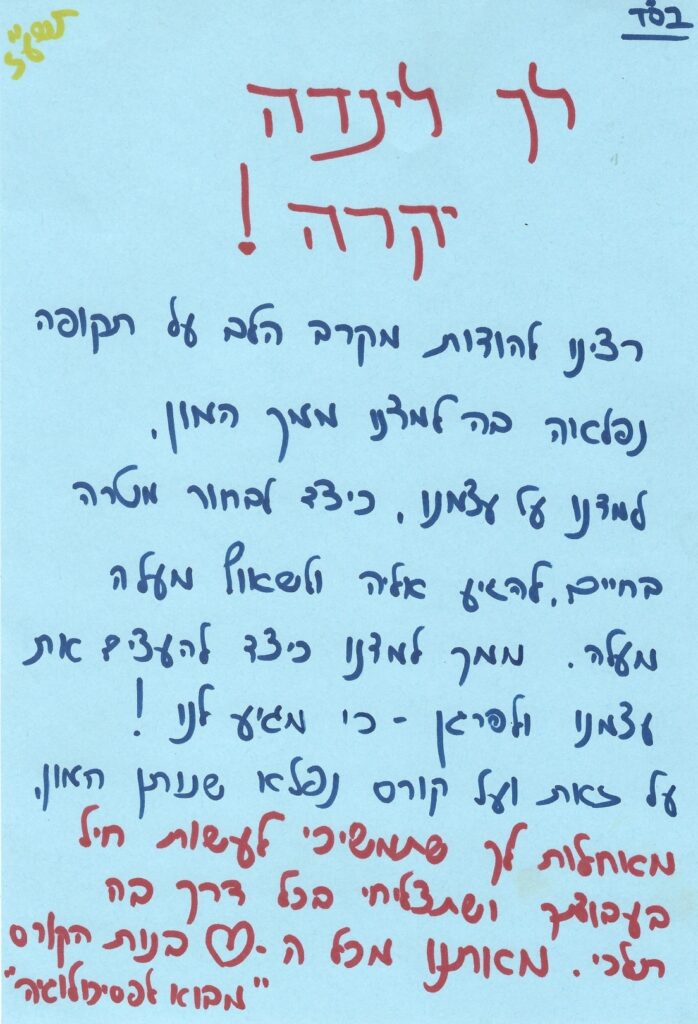 בסד
לך לינדה
יקרה!
רצינו להודות מקרב הלב על תקופה
נפלאה בה למדנו ממך המון,
למדנו על עצמנו, כיצד לבחור מטרה
בחיים, להגיע אליה ולשאוף מעלה
מעלה. ממך למדנו כיצד להעצים את
עצמנו ולפרגן - כי מגיע לנו!
על זאת ועל קורס נפלא שנותן המון,
מאחלות לך שתמשיכי לעשות חיל
בעבודתך ושתצליחי בכל דרך בה
תלכי. מאותנו מכל ה-♡ בנות הקורס
"מבוא לפסיכולוגיה"